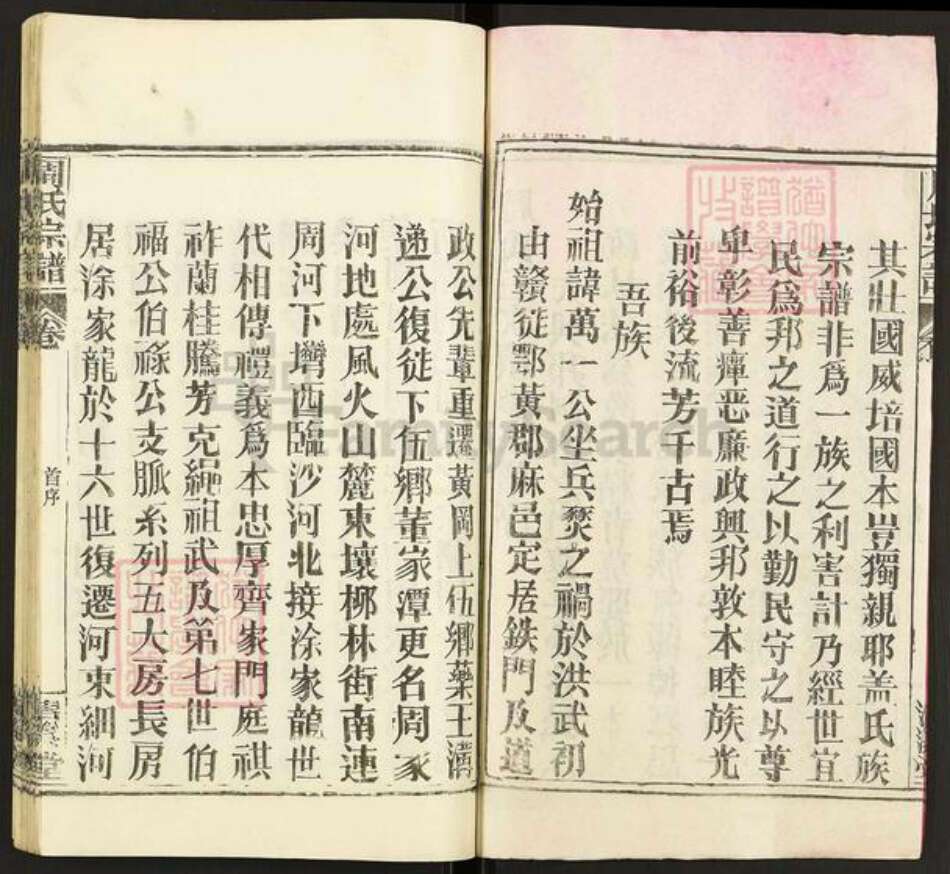 其壯國威培國本豈獨親耶盖氏族
宗譜非爲一族之利害計乃經世宜
民爲邦之道行之以勤民守之以尊
卑彰善癉惡廉政興邦敦本睦族光
前裕後流芳千古焉
吾族
始祖諱萬一公坐兵燹之禍於洪武初
由贛徙鄂黃郡麻邑定居鉄門及道
政公先輩重遷黃岡上伍鄉藥王
遞公復徙下伍鄉董家潭更名周家
河地處風火山麓東壤柳林街南連
周河下壪西臨沙河北接涂家龍世
代相傳禮義爲本忠厚齊家門庭祺
祚蘭桂騰芳克繩祖武及第七世伯
福公伯祿公支脈系列五大房長房
居涂家龍於十六世復遷河東細河
周氏宗譜
卷
首序
堂
FamilySearch